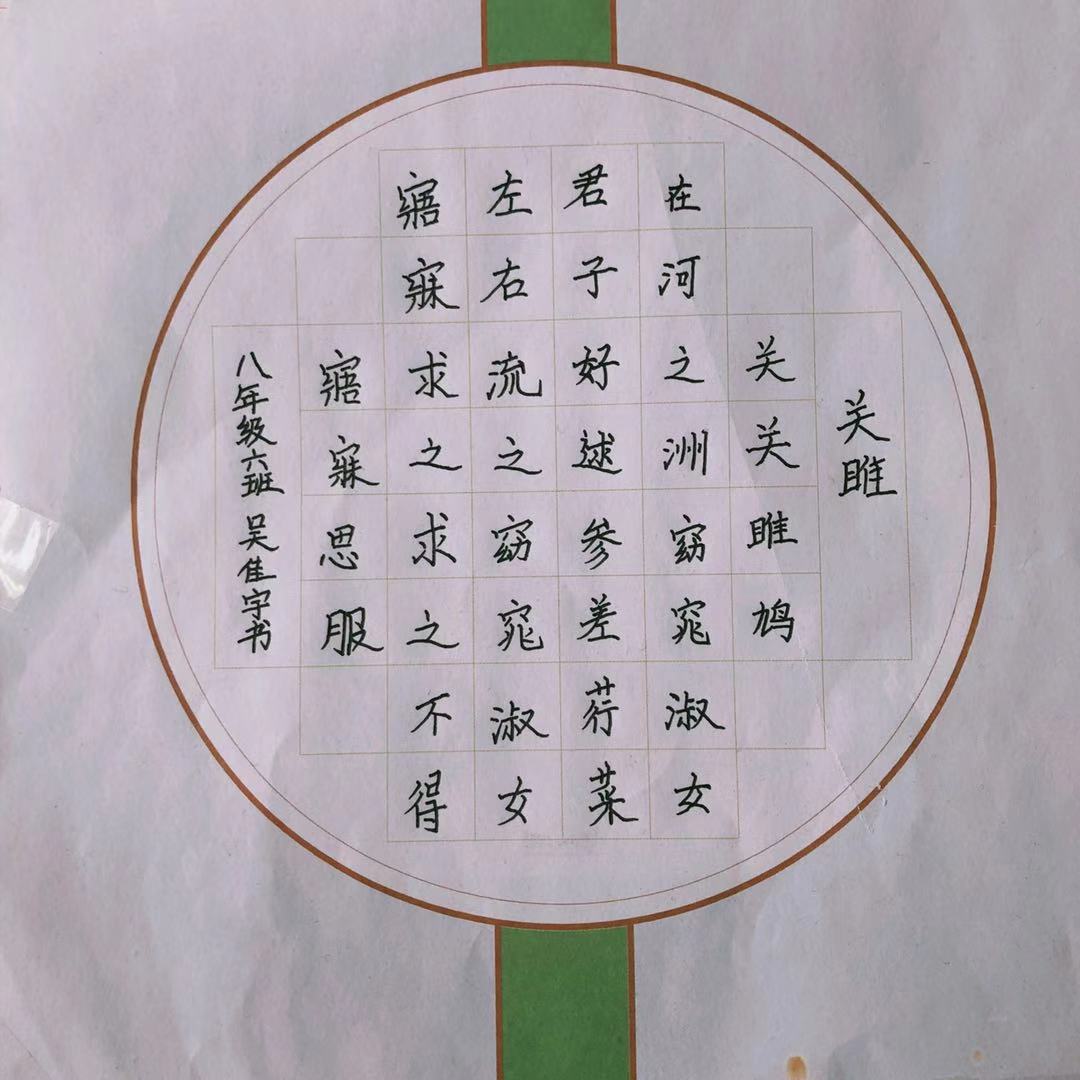 关雎
关关雎鸠
在河之洲窈窕淑女
君子好逑参差荇菜
左右流之窈窕淑女
寤寐求之求之不得
寤寐思服
八年级六班 吴佳宇书